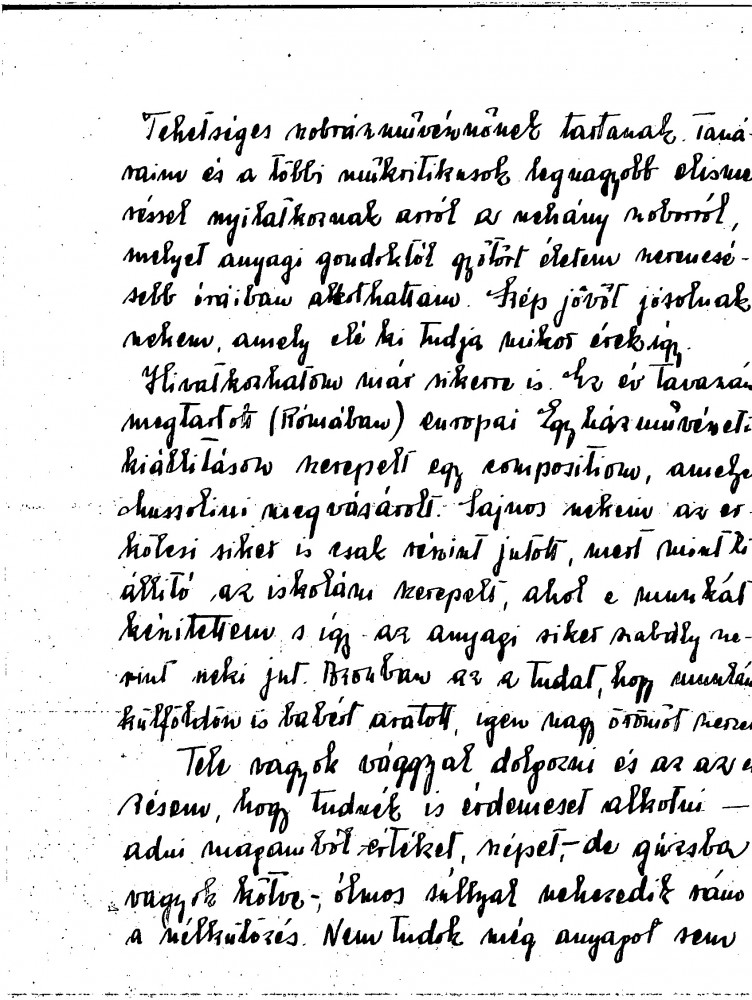 Tehetséges szobrászművésznőnek tartanak. Taná-
raim és a többi műkritikusok legnagyobb elisme
réssel nyilatkoznak arról az nehány szoborról,
melyet anyagi gondoktól gyötört életem szerencsé-
sebb óráiban alkothattam. Szép jövőt jósolnak
nekem, amely elé ki tudja mikor érek így.
Hivatkozhatom már sikerre is. Ez év tavaszán
megtartott (Rómában) europai Egyházművészeti
kiállításon szerepelt egy compositiom, amelye
Mussolini megvásárolt. Sajnos nekem az er-
kölcsi siker is csak részint jutott, mert mint ki
állító az iskolám szerepelt, ahol e munkát
készítettem s így az anyagi siker szabály sze-
rint neki jut. Azonban az a tudat, hogy munkám
külföldön is babért aratott, igen nagy örömöt szerez
Tele vagyok vággyal dolgozni és az az é
zésem, hogy tudnék is érdemeset alkotni —
adni magamból értéket, szépet,- de gúzsba
vagyok kötve-, ólmos súllyal nehezedik rám
a nélkülözés. Nem tudok még anyagot sem